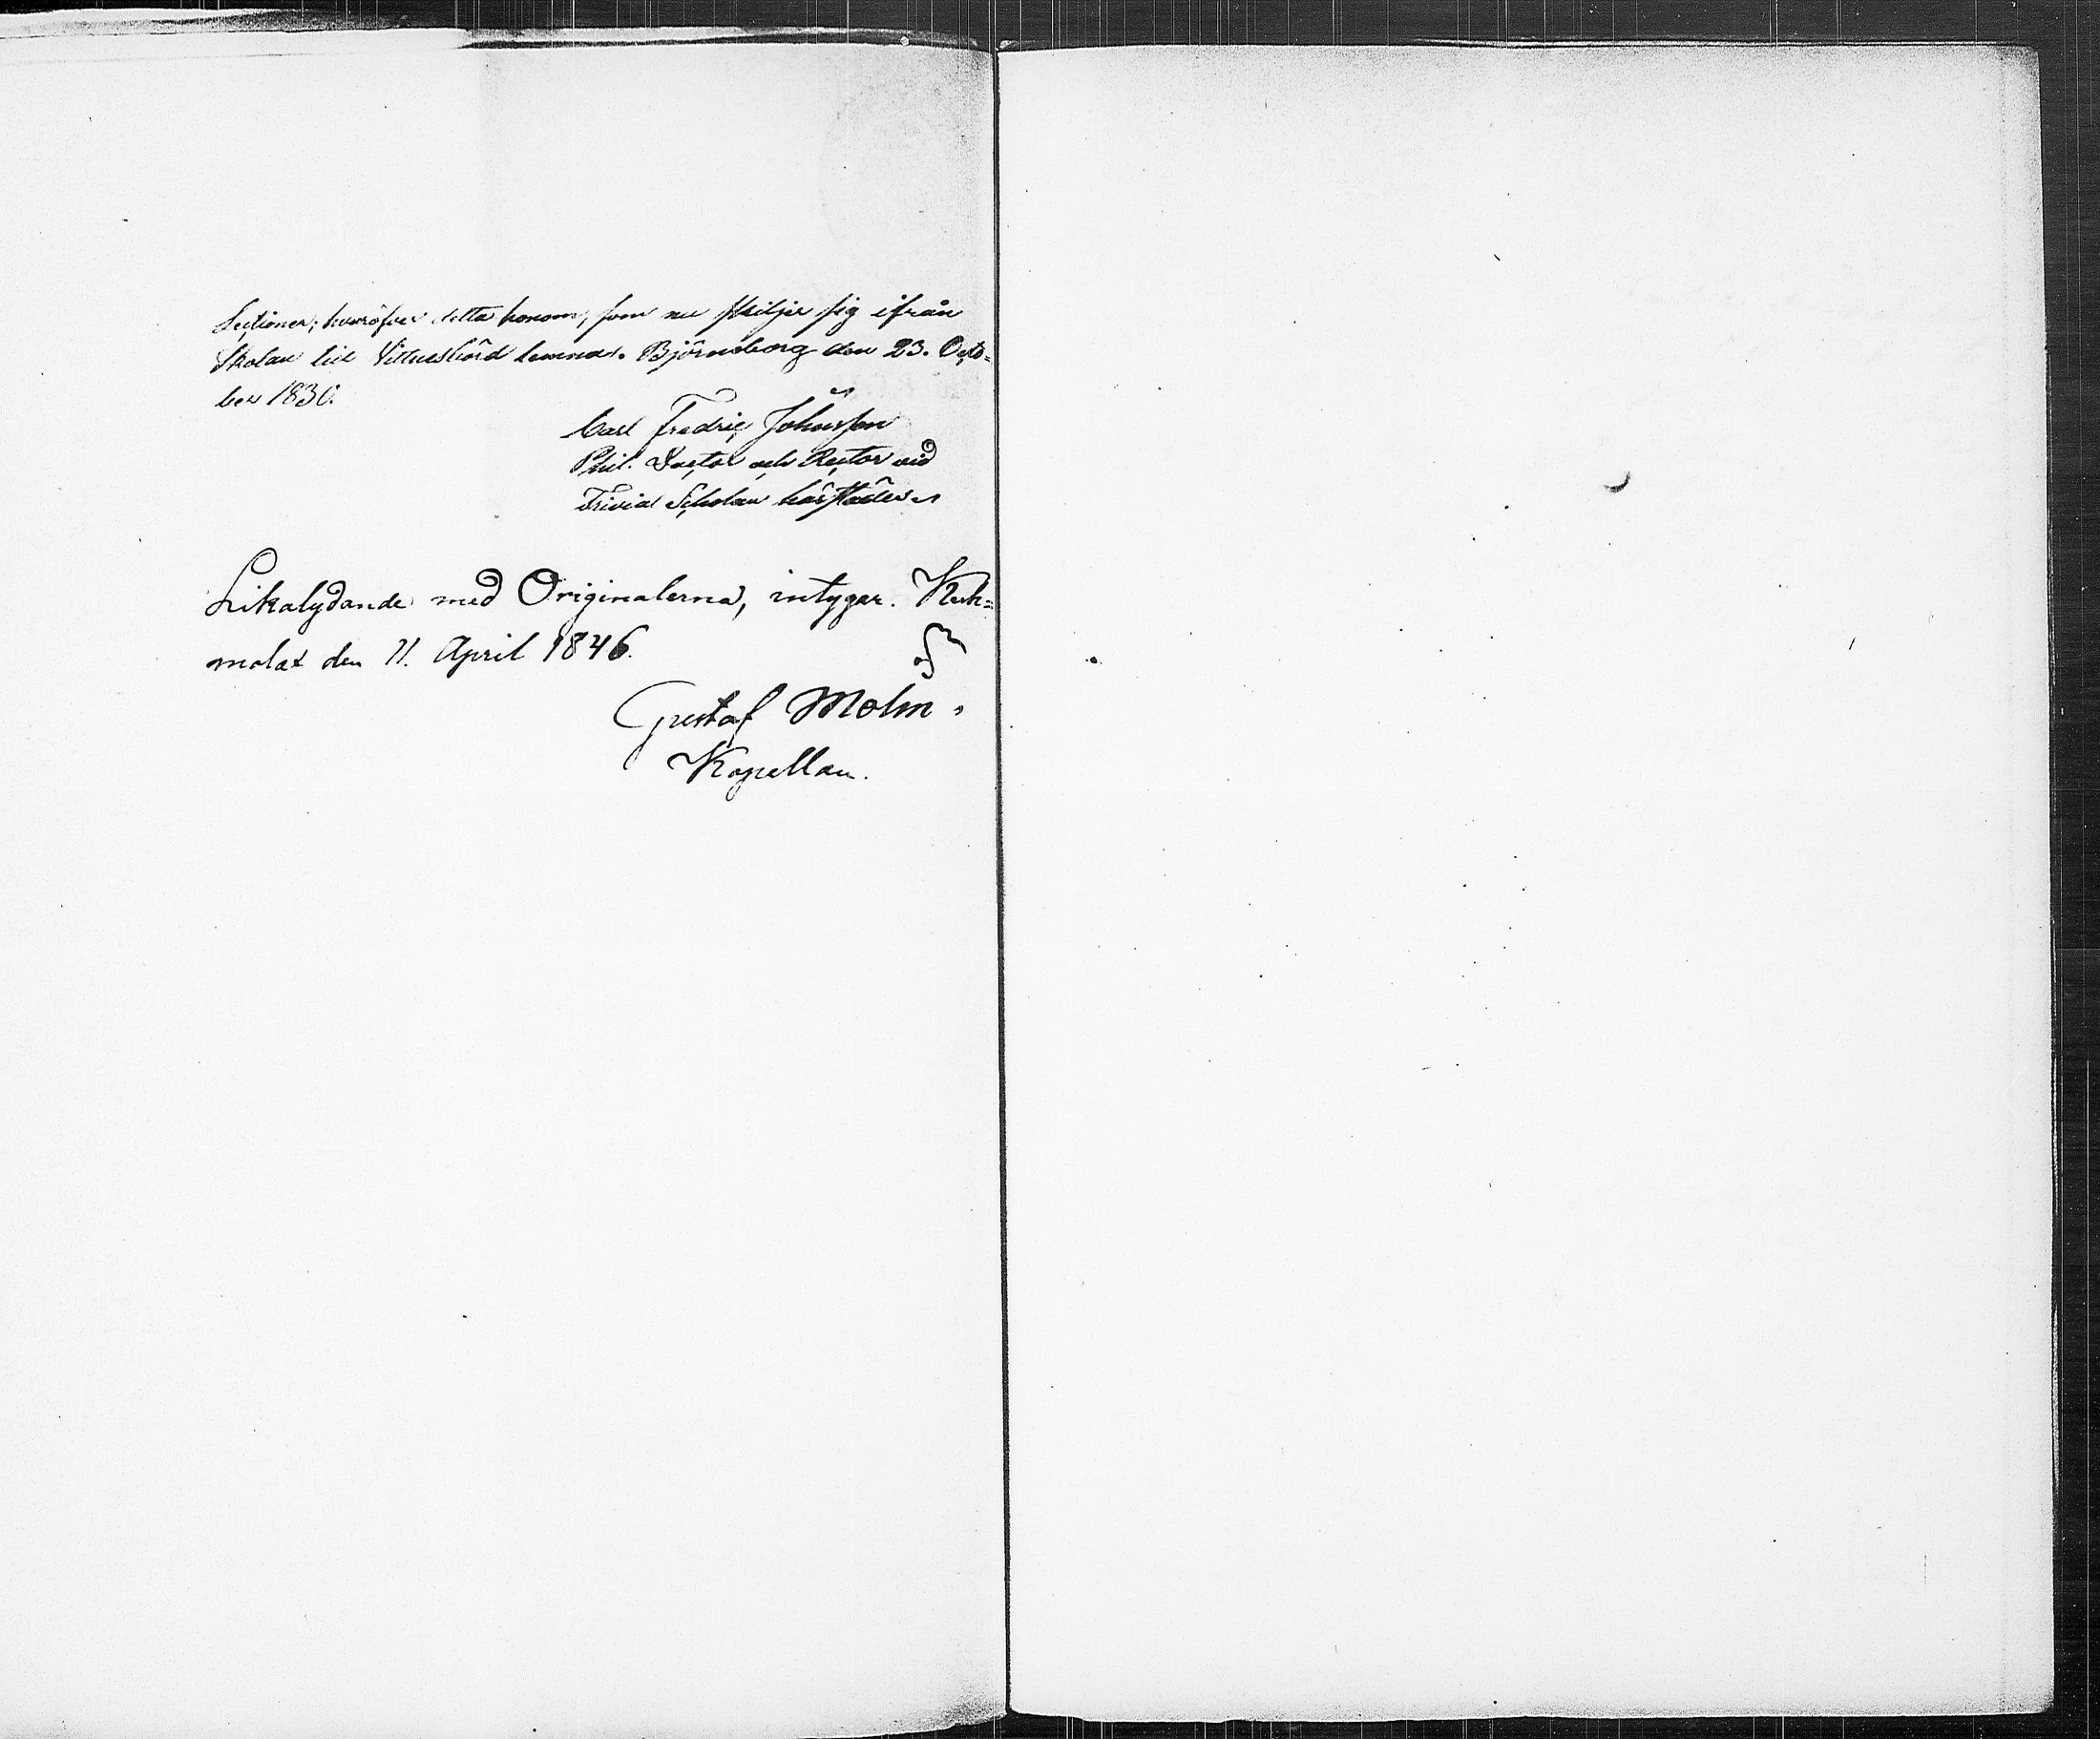 Lectioner; hvaröfver detta honom, som nu skiljer sig ifrån
Skolan till Vittnesbörd lemnas. Björneborg den 23. Octo-
ber 1830.
Carl Fredric Johnsson
Phil. Doctor och Rector vid
Trivial Scholan härstädes
Likalydande med Originalerna, intygar.
molax den 11. April 1846.
Gustaf Molin.
Kapellan.